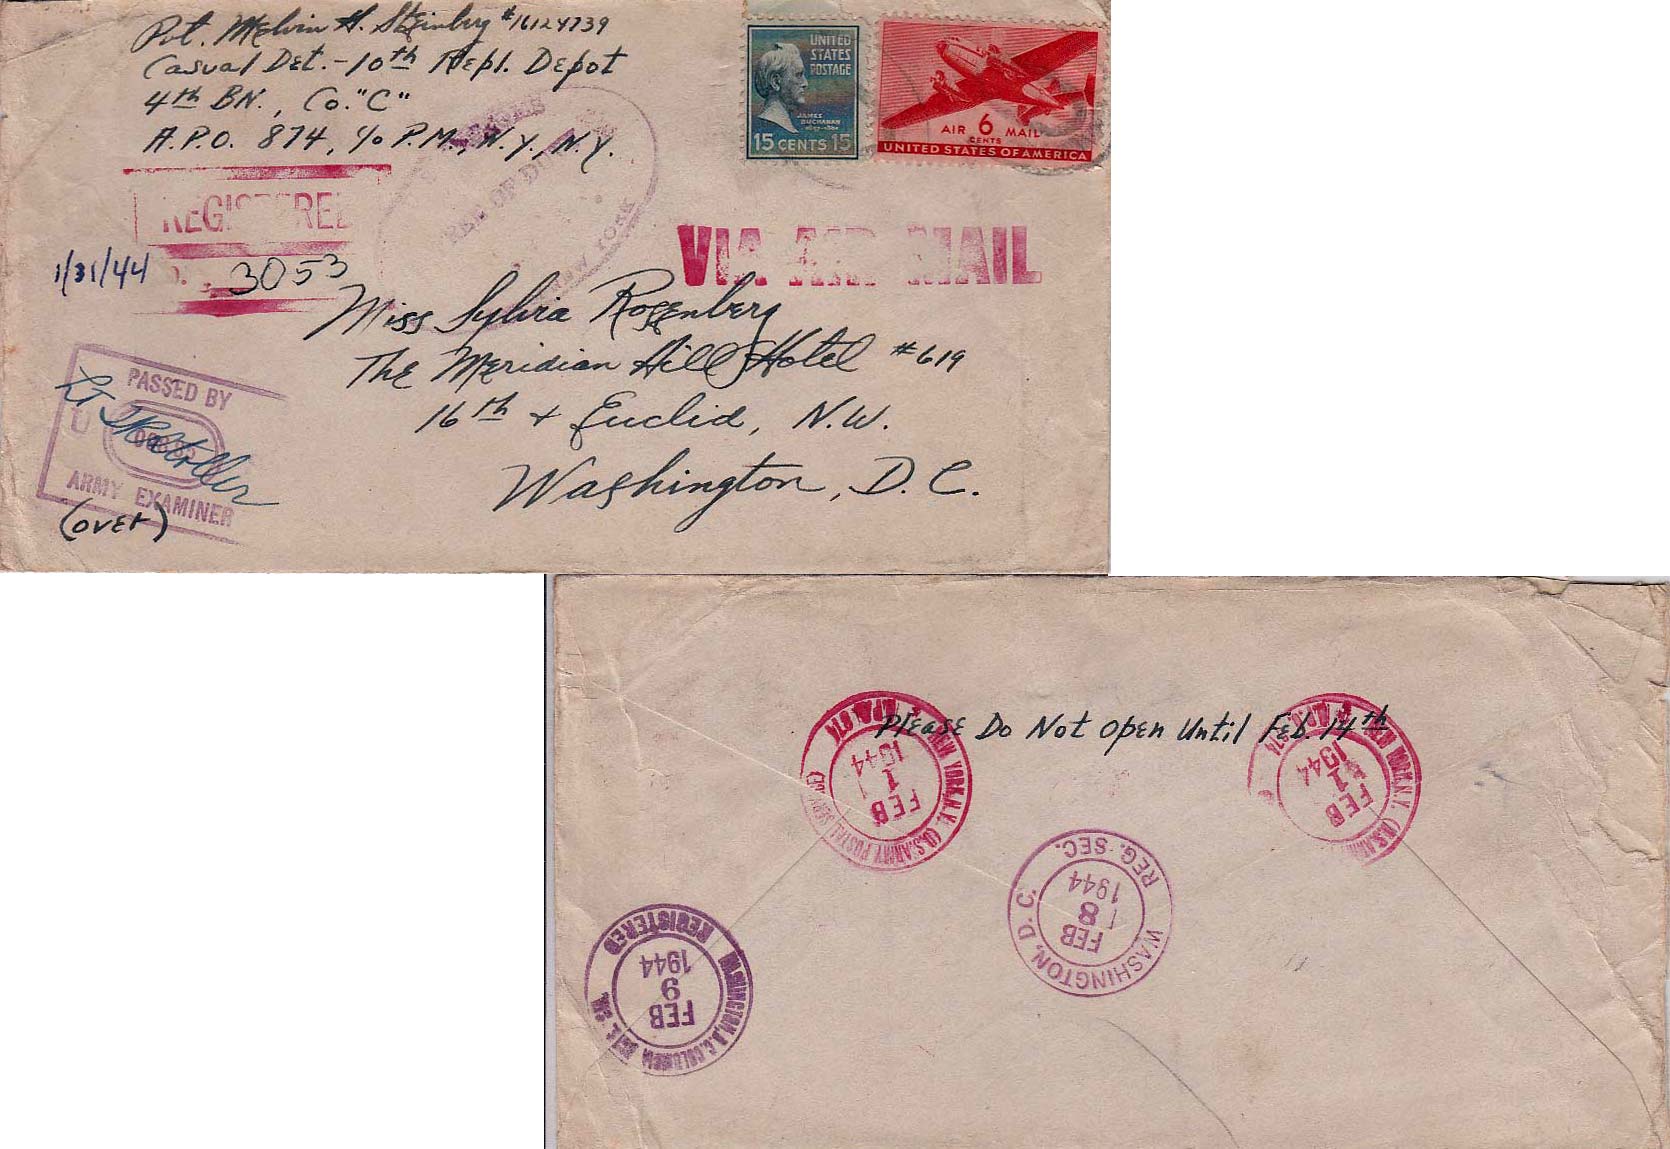 Pvt. Melvin H. Steinberg #16124739
Casual Det. - 10th Repl. Depot
4th BN., Co. "C"
A.P.O. 874, c/o P.M., N.Y., N.Y.
UNITED
STATES
POSTAGE
JAMES
BUCHANAN
15 CENTS 15
AIR 6 MAIL
CENTS
UNITED STATES OF AMERICA
REGISTERED
3053
FREE OF DUTY
NEW YORK
VIA AIR MAIL
1/31/44
Miss Sylvia Rosenberg
The Meridian Hill Hotel #619
16th & Euclid, N.W.
Washington, D.C.
PASSED BY
Lt
ARMY EXAMINER
(over)
Please Do Not Open Until Feb. 14th
NEW YORK, N.Y. (U.S. ARMY POSTAL SERVICE) A.P.O. 874
FEB
1
1944
NEW YORK, N.Y. (U.S. ARMY
874
FEB
1
1944
WASHINGTON, D.C.
REG. SEC.
FEB
8
1944
WASHINGTON, D.C. COLUMBIA
REGISTERED
FEB
9
1944